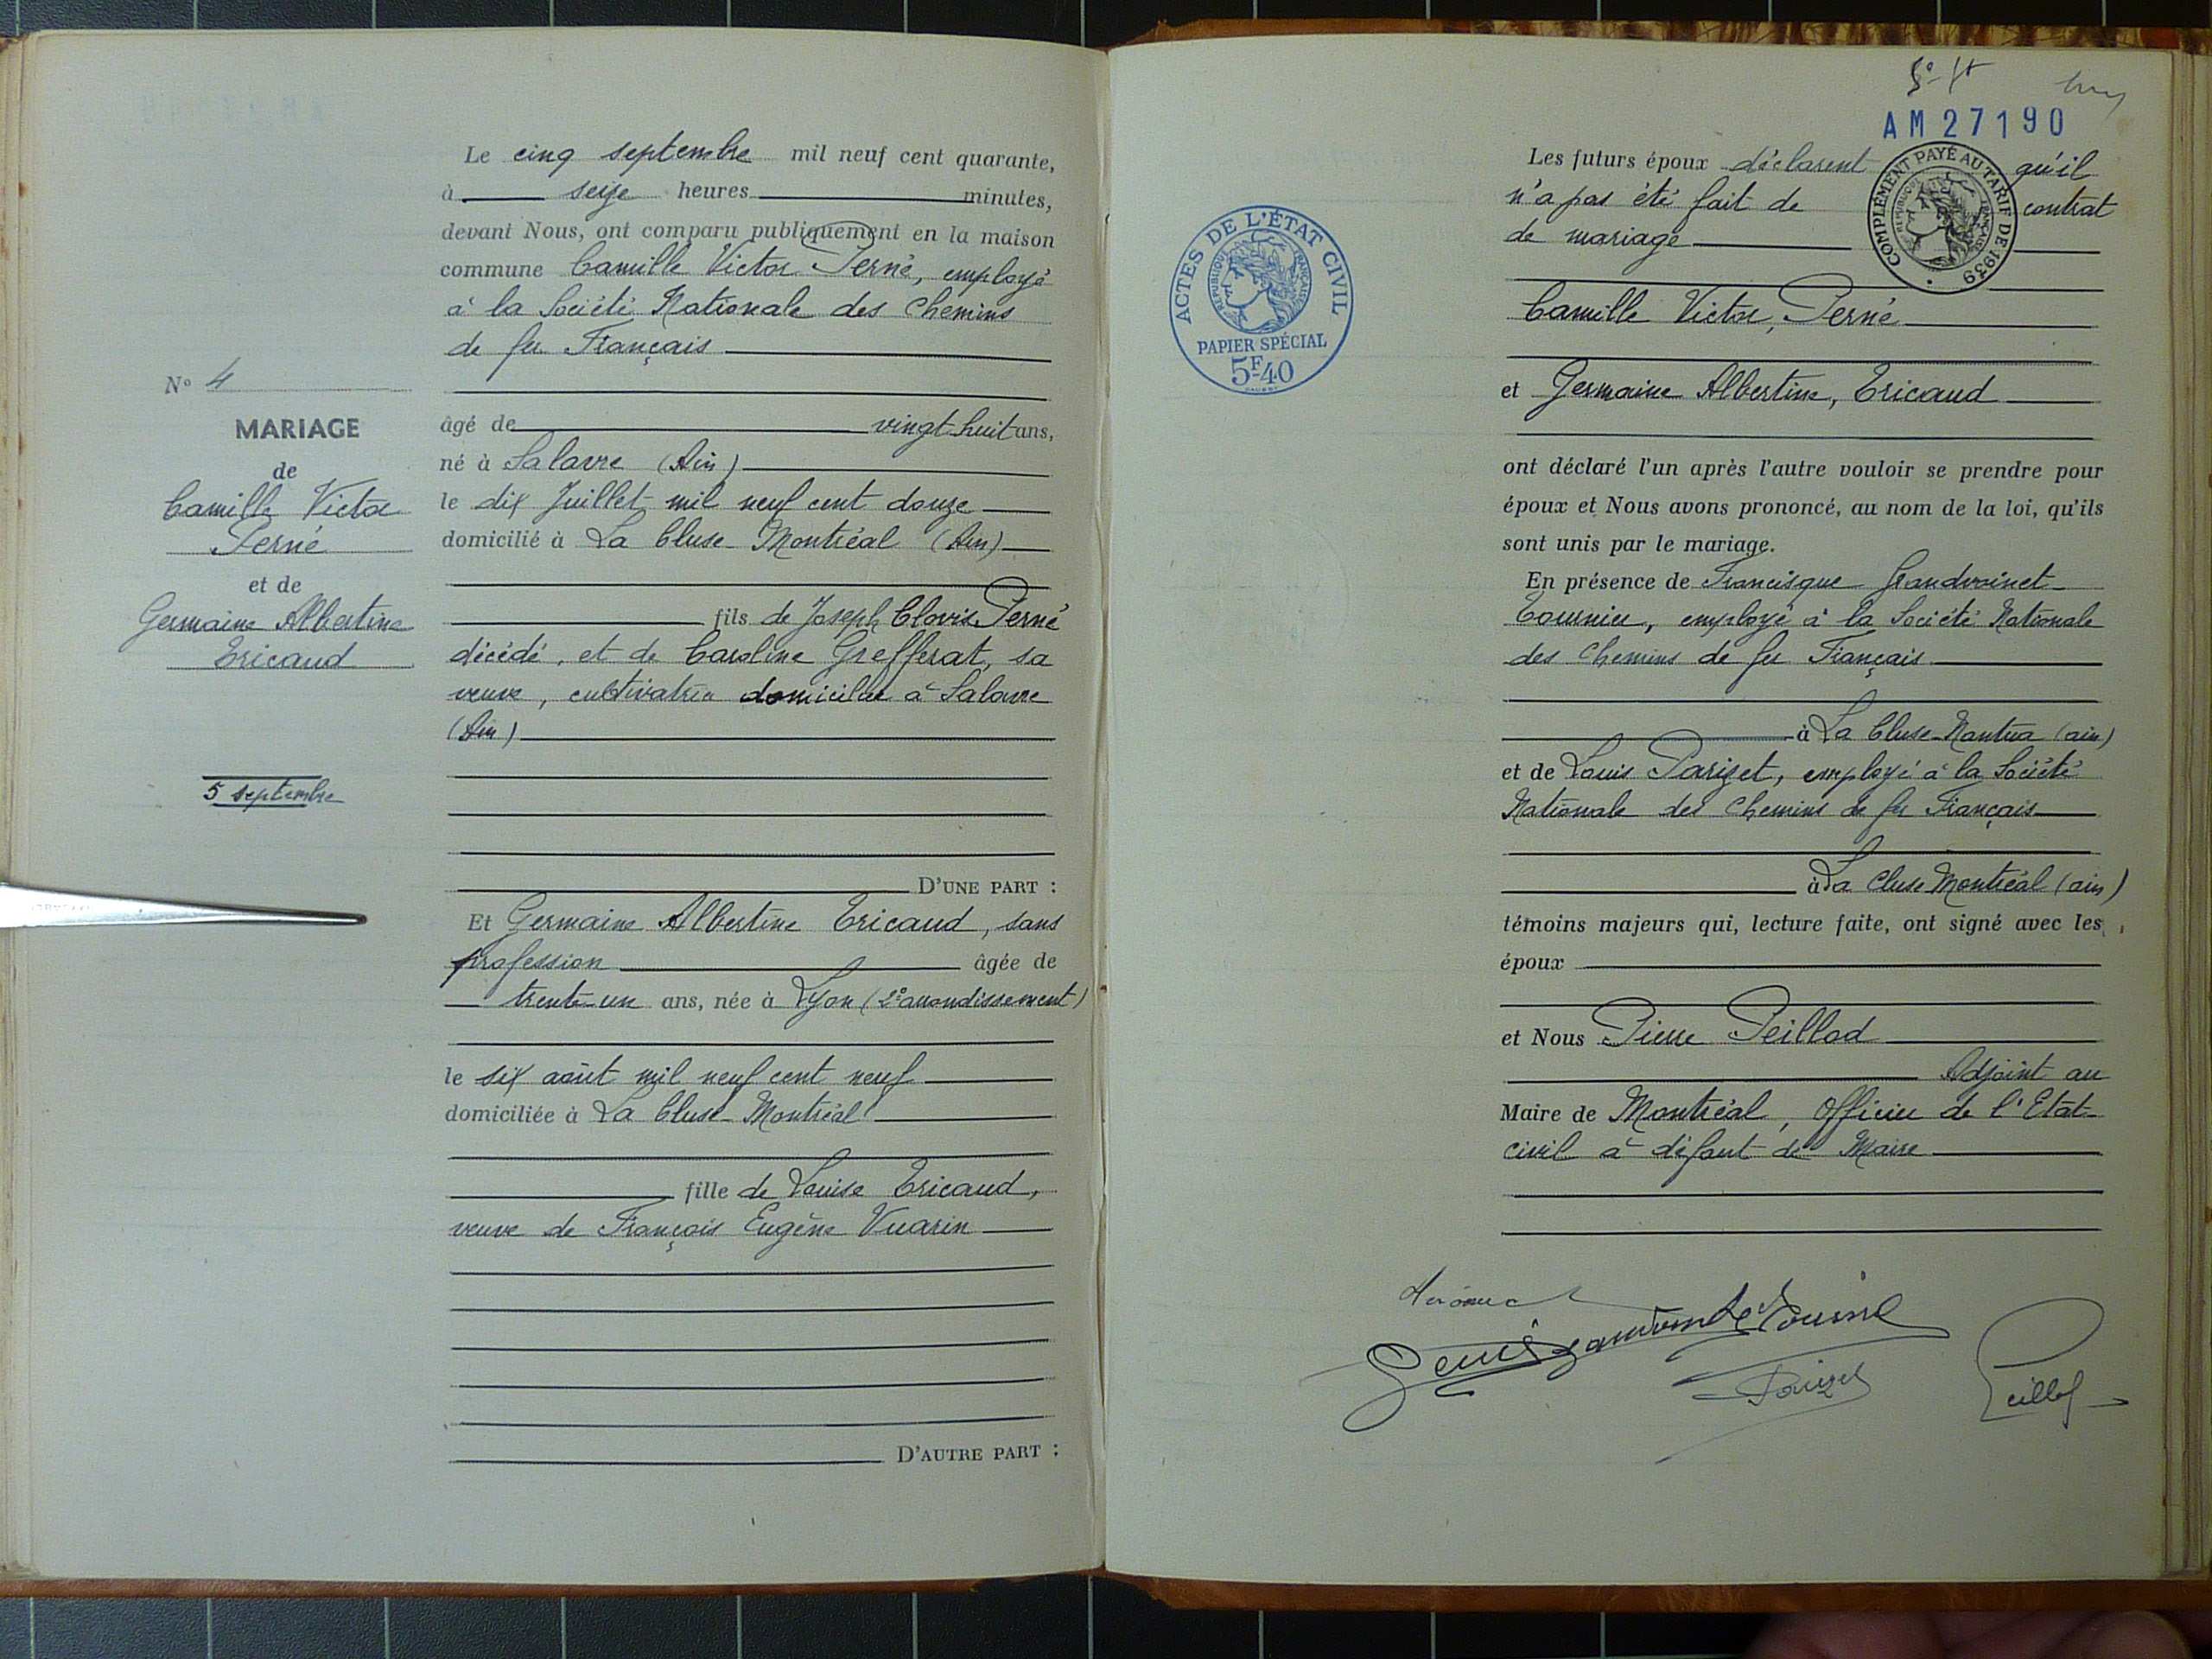 N° 4
MARIAGE
de
Camille Victor
Perné
et de
Germaine Albertine
Ericaud
5 septembre
Le cinq septembre mil neuf cent quarante,
à seize heures minutes,
devant Nous, ont comparu publiquement en la maison
commune Camille Victor Perné, employé
à la Société Nationale des Chemins
de fer Français
âgé de vingt-huit ans,
né à Salavre (Ain)
le dix Juillet mil neuf cent douze
domicilié à La Cluse-Montréal (Ain)
fils de Joseph Clovis Perné
décédé, et de Caroline Grefferat, sa
veuve, cultivatrice domiciliée à Salavre
(Ain)
D'UNE PART :
Et Germaine Albertine Ericaud, sans
profession âgée de
trente-un ans, née à Lyon (2e arrondissement)
le six août mil neuf cent neuf
domiciliée à La Cluse-Montréal
fille de Louise Ericaud,
veuve de François Eugène Vuarin
D'AUTRE PART :
ACTES DE L'ÉTAT CIVIL
RÉPUBLIQUE FRANÇAISE
PAPIER SPÉCIAL
5F40
AM 27190
COMPLÉMENT PAYÉ AU TARIF DE 1939
RÉPUBLIQUE FRANÇAISE
Les futurs époux déclarent qu'il
n'a pas été fait de contrat
de mariage
Camille Victor, Perné
et Germaine Albertine, Ericaud
ont déclaré l'un après l'autre vouloir se prendre pour
époux et Nous avons prononcé, au nom de la loi, qu'ils
sont unis par le mariage.
En présence de Francisque Grandvoinet-
Tournier, employé à la Société Nationale
des Chemins de fer Français
à La Cluse-Nantua (ain)
et de Louis Pariset, employé à la Société
Nationale des Chemins de fer Français
à La Cluse Montréal (ain)
témoins majeurs qui, lecture faite, ont signé avec les
époux
et Nous Pierre Peillod
Adjoint au
Maire de Montréal, Officier de l'Etat-
civil à défaut de Maire
Peillod